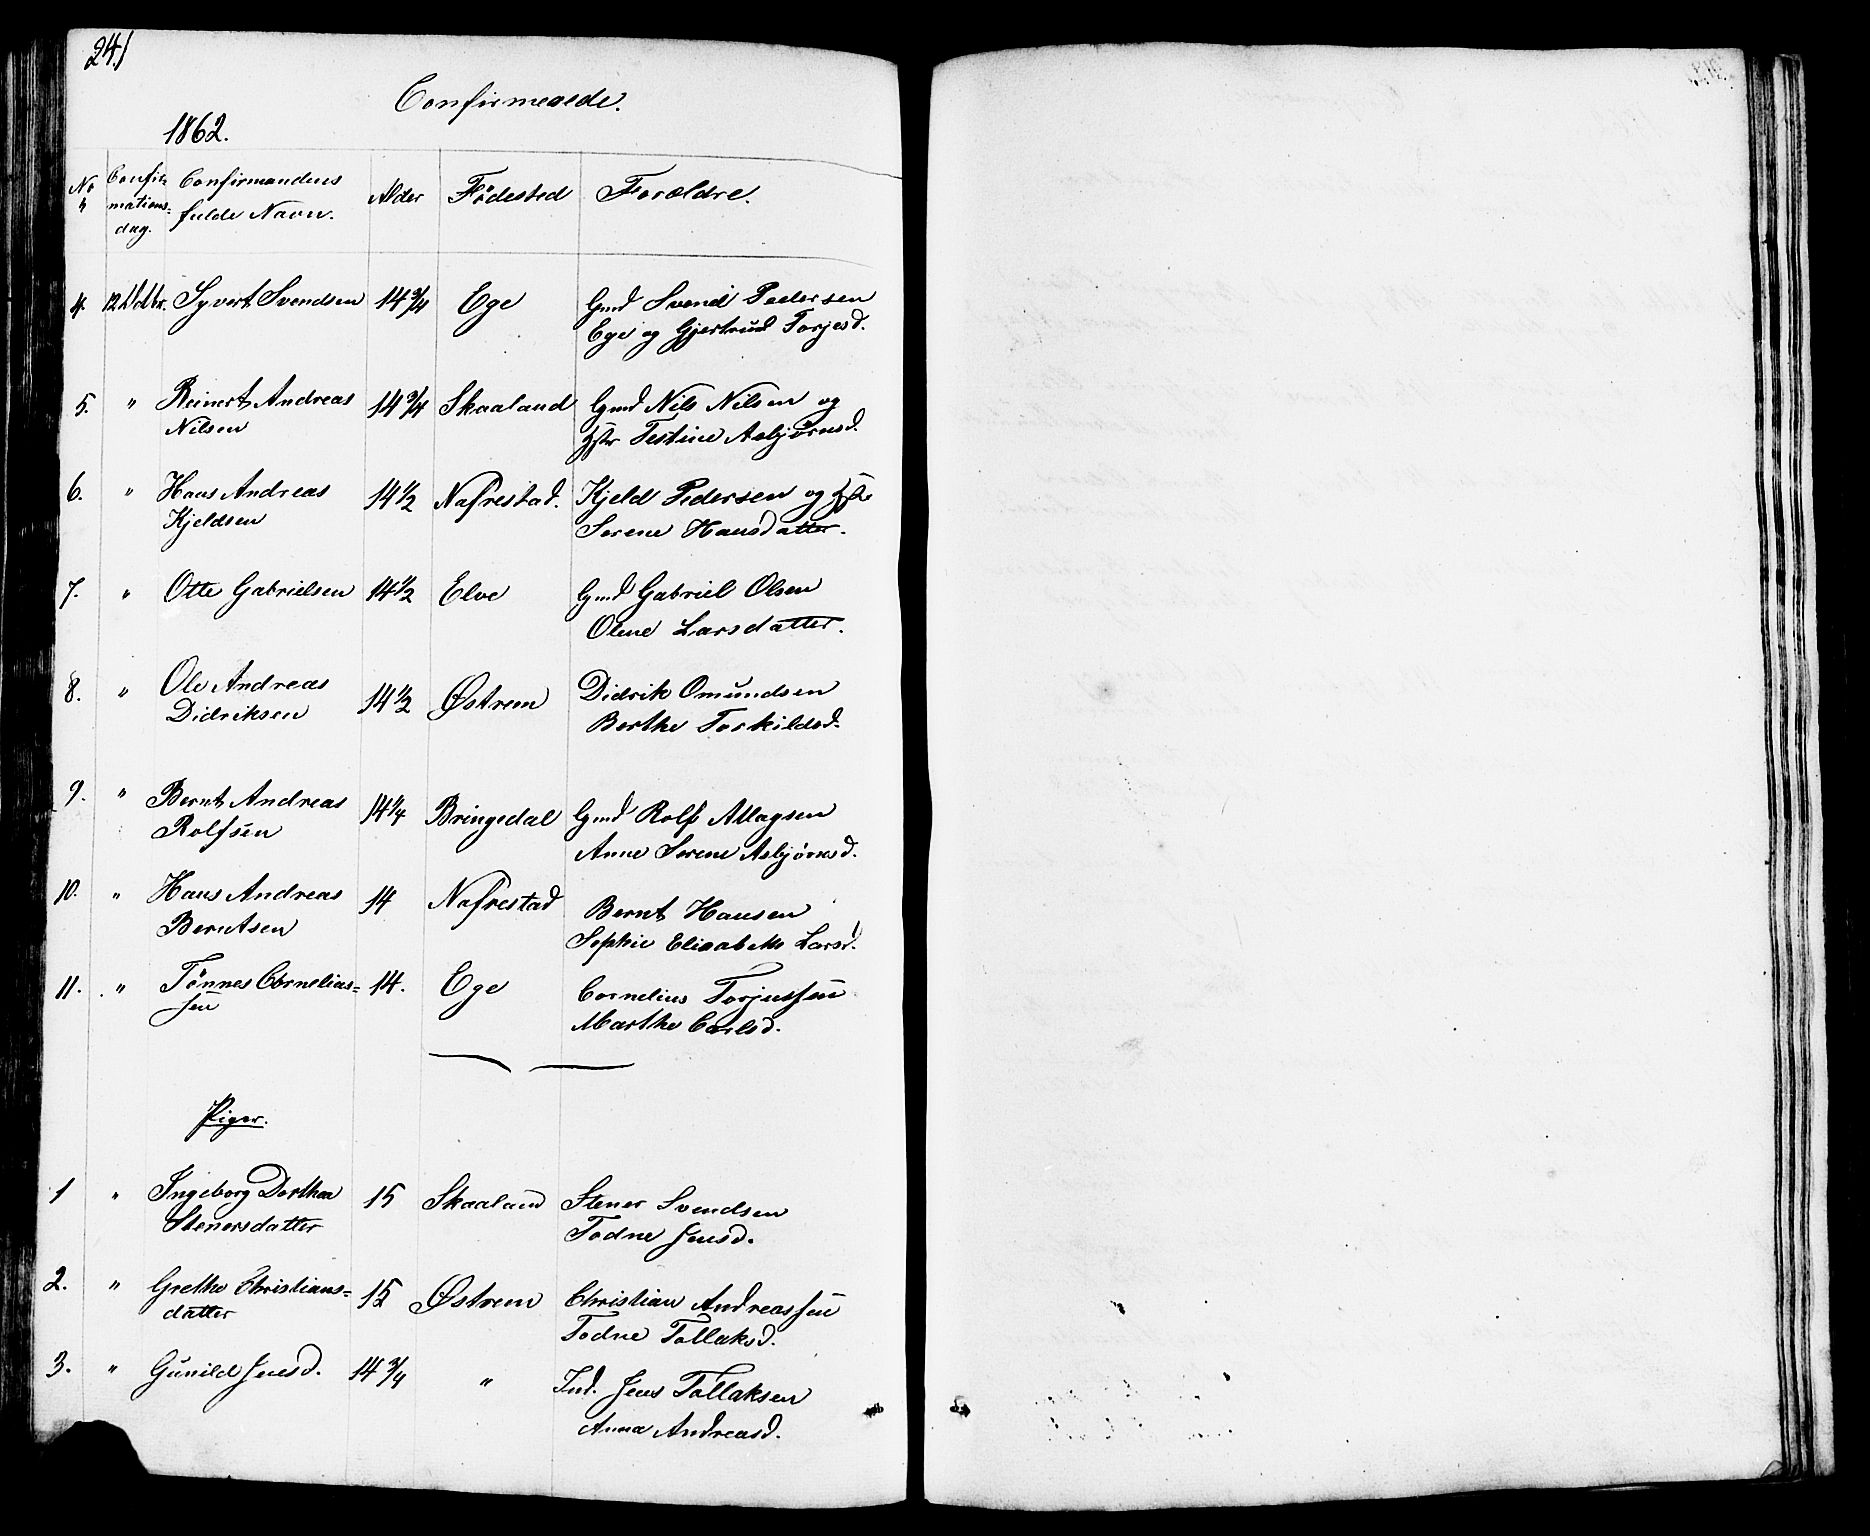 241
Confirmerede.
1862.
No Confir- Confirmandens Alder Fødested Forældre.
mations- fulde Navn.
dag.
4. 12 Octbr. Syvert Svendsen 14 3/4 Ege Gmd Svend Pedersen
Ege og Gjertrud Torjesd.
5. " Reinert Andreas 14 3/4 Skaaland Gmd Nils Nilsen og
Nilsen Hstr Testine Asbjørnsd.
6. " Hans Andreas 14 1/2 Nafrestad. Kjeld Pedersen og Hstr
Kjeldsen Serene Hansdatter.
7. " Otte Gabrielsen 14 1/2 Elve Gmd Gabriel Olsen
Olene Larsdatter.
8. " Ole Andreas 14 1/2 Østrem Didrik Omundsen
Didriksen Berthe Torkildsd.
9. " Bernt Andreas 14 1/4 Bringedal Gmd Rolf Atlagsen
Rolfsen Anne Serene Asbjørnsd.
10. " Hans Andreas 14 Nafrestad Bernt Hansen
Berntsen Sophie Elisabeth Larsd.
11. " Tønnes Cornelius- 14. Ege Cornelius Torjussen
sen Marthe Carlsd.
Piger.
1 " Ingeborg Dorthea 15 Skaaland Stener Svendsen
Stenersdatter Todne Jensd.
2. " Grethe Christians- 15 Østrem Christian Andreassen
datter Todne Tollaksd.
3. " Gunild Jensd. 14 3/4 " Ind. Jens Tollaksen
Anna Andreasd.